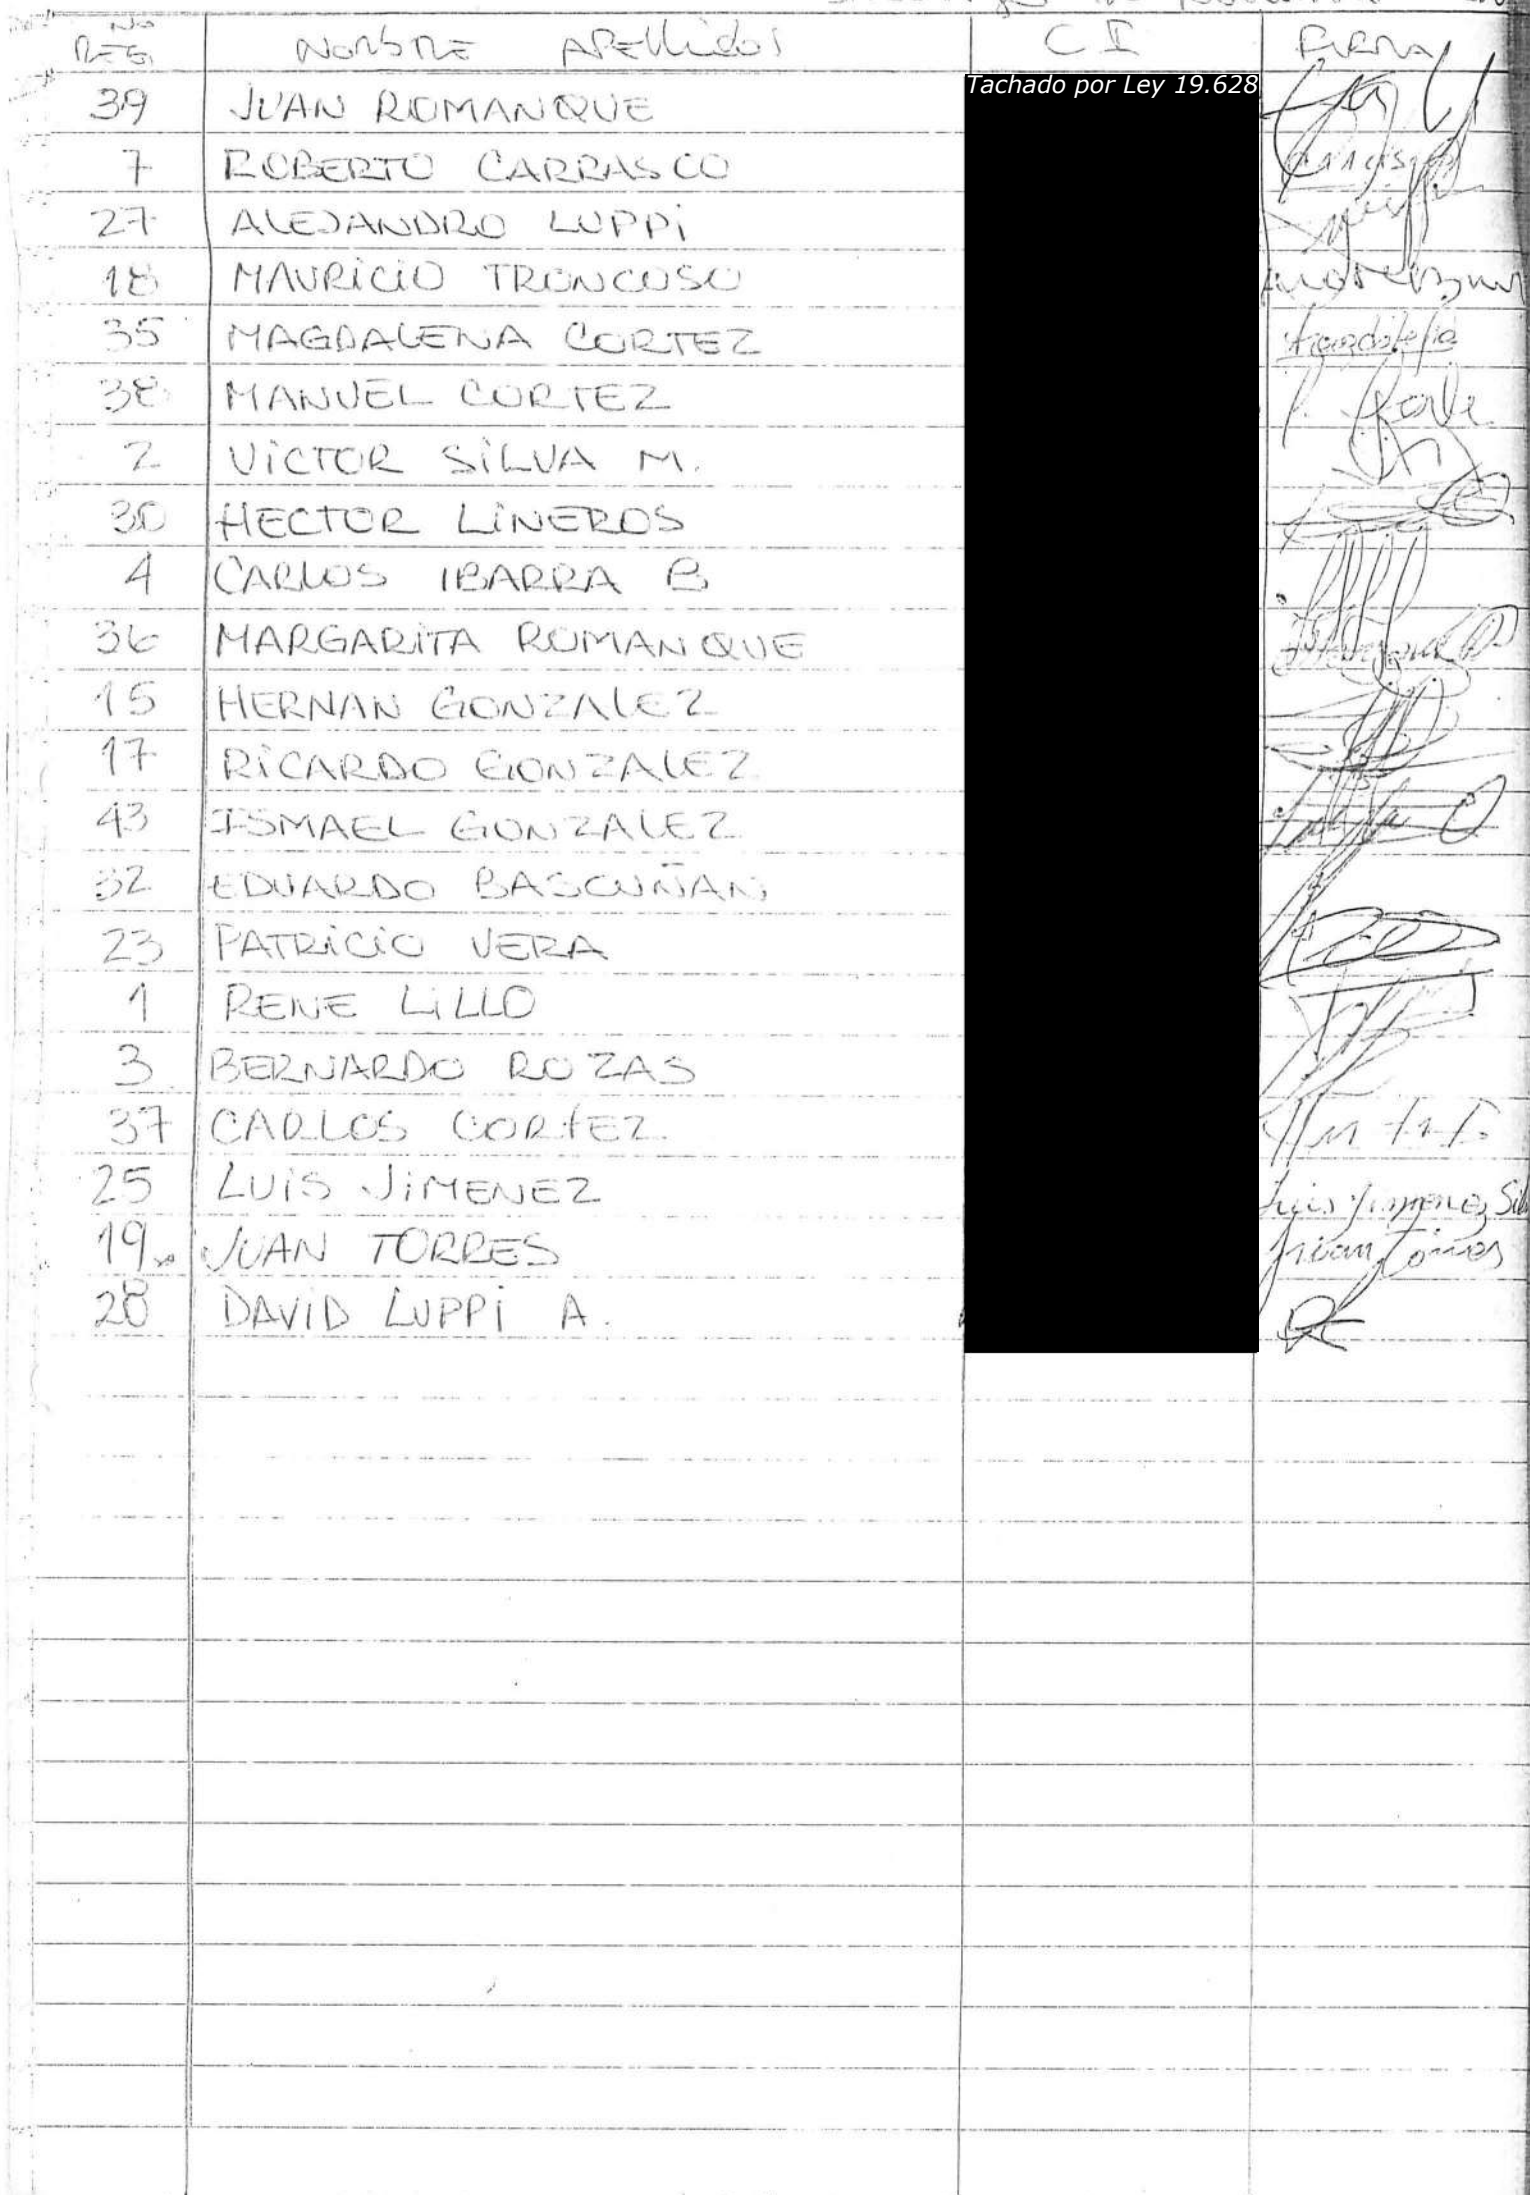 No
REG. NOMBRE APELLidOS C I FIRMA
Tachado por Ley 19.628
39 JUAN ROMANQUE
7 ROBERTO CARRASCO
27 ALEJANDRO LUPPi
18 MAURiCiO TRONCOSO
35 MAGDALENA CORTEZ
38 MANUEL CORTEZ
2 ViCTOR SiLVA M.
30 HECTOR LiNEROS
4 CARLOS IBARRA B
36 MARGARiTA ROMANQUE
15 HERNAN GONZALEZ
17 RiCARDO GONZALEZ
43 ISMAEL GONZALEZ
32 EDUARDO BASCUÑAN
23 PATRiCiO VERA
1 RENE LiLLO
3 BERNARDO ROZAS
37 CARLOS CORtEZ
25 LUiS JiMENEZ Luis Jimenez Sil
19 JUAN TORRES Juan Torres
28 DAViD LUPPi A.